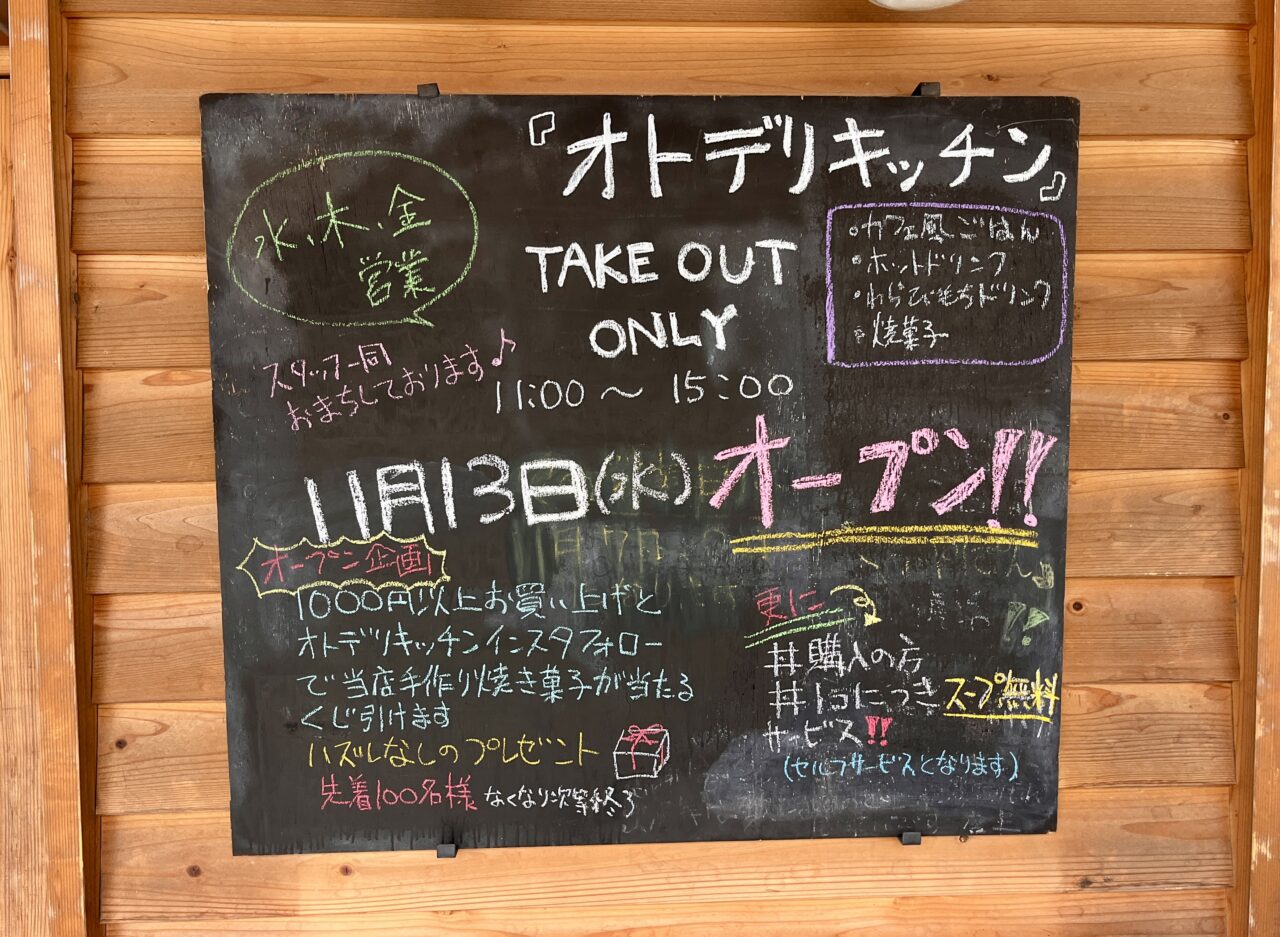 『オトデリキッチン』
水、木、金
営業
TAKE OUT
ONLY
11:00～15:00
・カフェ風ごはん
・ホットドリンク
・わらびもちドリンク
・焼菓子
スタッフ一同
おまちしております♪
11月13日(水)オープン!!
オープン企画
1000円以上お買い上げと
オトデリキッチンインスタフォロー
で当店手作り焼き菓子が当たる
くじ引けます
ハズレなしのプレゼント
先着100名様 なくなり次㐧終了
更に
#購入の方
#1コにつきスープ無料
サービス!!
(セルフサービスとなります)